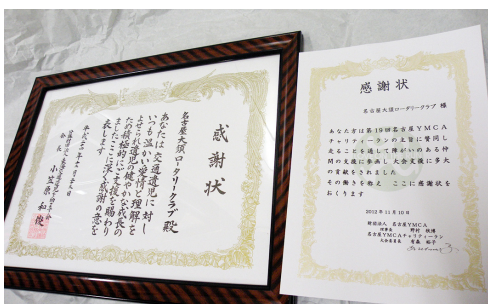 感謝状
名古屋大須ロータリークラブ殿
あなたは交通遺児に対し
いつも温かい愛情と理解を
よせられ遺児の健やかな成長の
ため積極的にご支援を賜わり
ましたここに深く感謝の意を
表します
会長 小笠原和俊
感謝状
名古屋大須ロータリークラブ 様
あなた方は第19回名古屋YMCA
チャリティーランの主旨に賛同し
走ることを通して障がいのある仲
間の支援に参画し大会支援に多大
の貢献をされました
その働きを称え ここに感謝状を
おくります
2012年11月10日
財団法人 名古屋YMCA
理事長 野村 秋博
名古屋YMCAチャリティーラン
大会委員長 有森 裕子